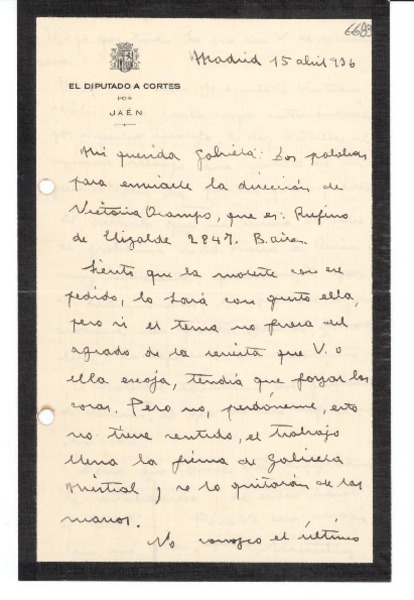 6683
Madrid 15 abril 936
EL DIPUTADO A CORTES
POR
JAÉN
Mi querida Gabriela: Dos palabras
para enviarle la dirección de
Victoria Ocampo, que es: Rufino
de Elizalde 2847. B. aires.
Siento que la moleste con ese
pedido, lo hará con gusto ella,
pero si el tema no fuera del
agrado de la revista que V. o
ella escoja, tendría que forzar las
cosas. Pero no, perdóneme, esto
no tiene sentido, el trabajo
lleva la firma de Gabriela
Mistral, y se lo quitarán de las
manos.
No conozco el último